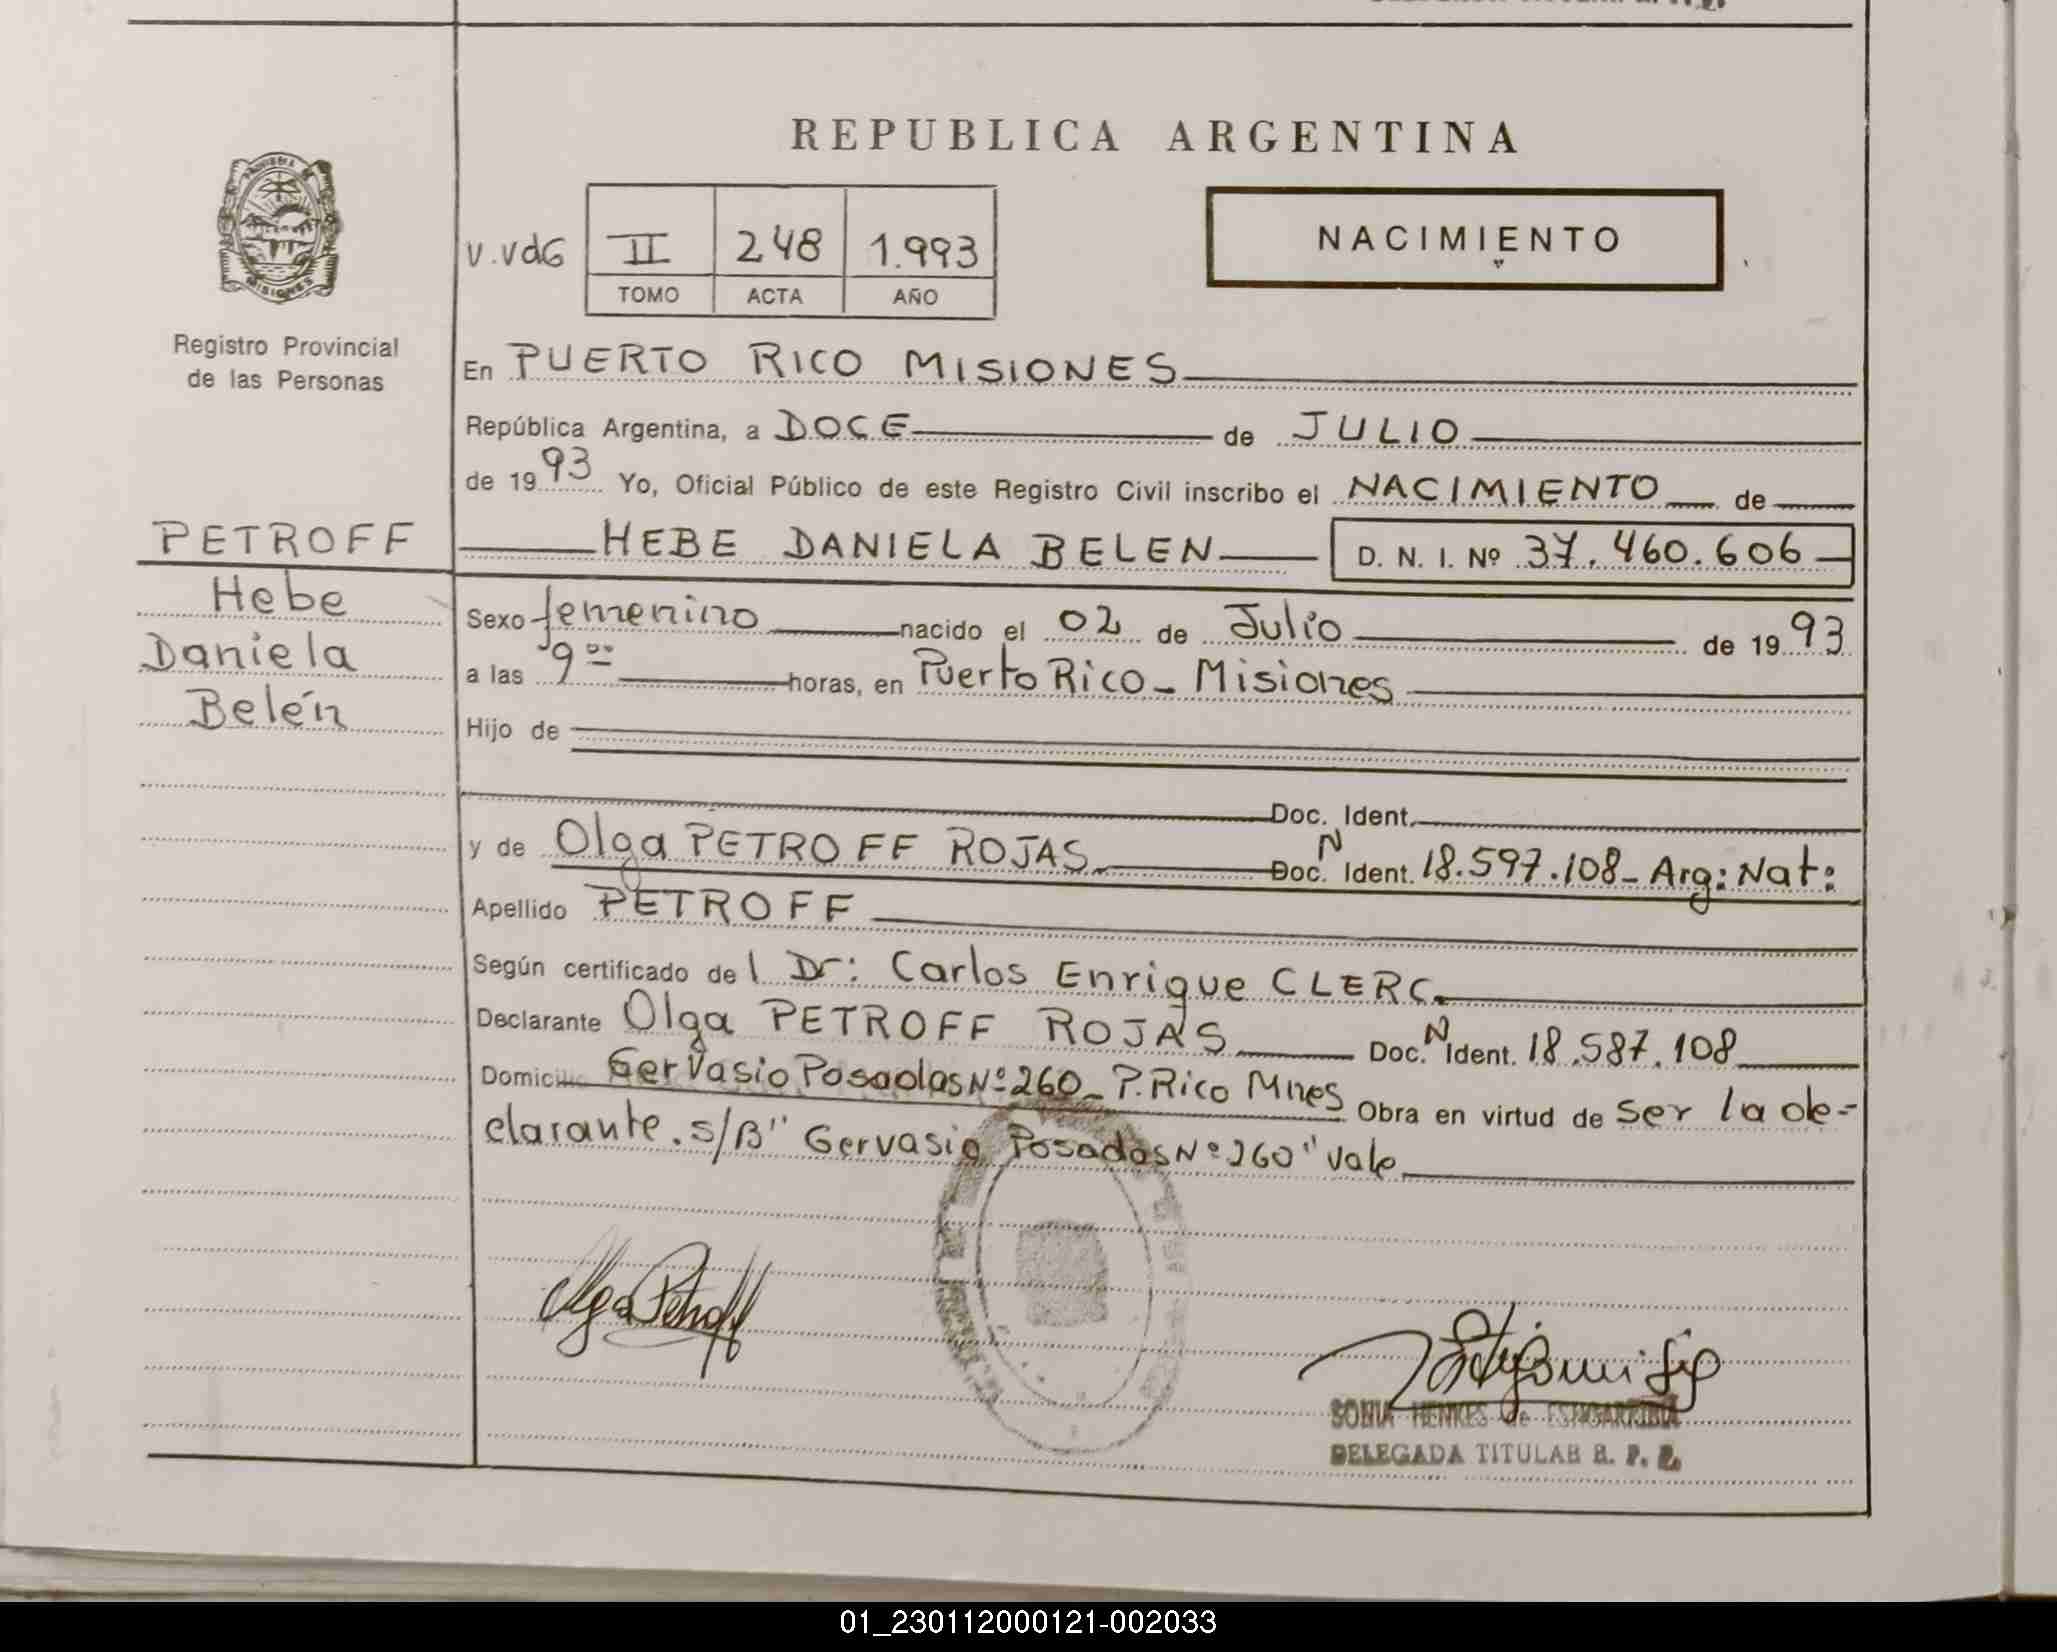 REPUBLICA ARGENTINA
PROVINCIA
MISIONES
Registro Provincial
de las Personas
V.VdG II 248 1.993
TOMO ACTA AÑO
NACIMIENTO
En PUERTO RICO MISIONES
República Argentina, a DOCE de JULIO
de 1993 Yo, Oficial Público de este Registro Civil inscribo el NACIMIENTO de
PETROFF
Hebe
Daniela
Belén
HEBE DANIELA BELEN D. N. I. Nº 37.460.606
Sexo femenino nacido el 02 de Julio de 1993
a las 9 00 horas, en Puerto Rico - Misiones
Hijo de
Doc. Ident.
y de Olga PETROFF ROJAS Doc. N Ident. 18.597.108 - Arg: Nat:
Apellido PETROFF
Según certificado del Dr: Carlos Enrique CLERC.
Declarante Olga PETROFF ROJAS Doc. N Ident. 18.587.108
Domicilio Gervasio Posadas Nº 260 - P. Rico Mnes Obra en virtud de ser la de-
clarante. S/B" Gervasio Posadas Nº 260" Vale
Olga Petroff
SONIA HENKES de
DELEGADA TITULAR R. P. P.
01_230112000121-002033